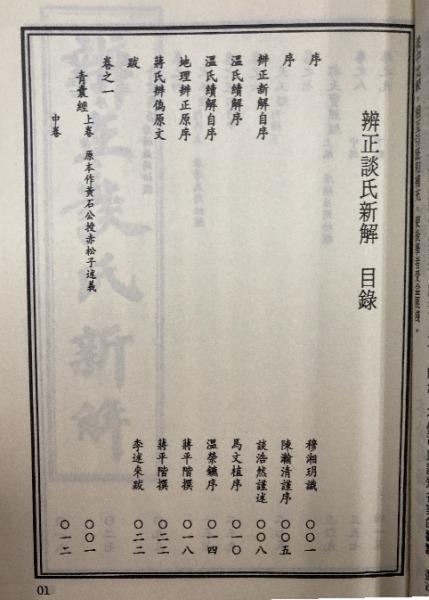 辨正談氏新解　目錄
序　穆湘玥識　〇〇一
序　陳瀚清謹序　〇〇五
辨正新解自序　談浩然謹述　〇〇八
溫氏續解序　馬文植序　〇一〇
溫氏續解自序　溫榮鑣序　〇一四
地理辨正原序　蔣平階撰　〇一八
蔣氏辨偽原文　蔣平階撰　〇二二
跋　李述來跋　〇二二
卷之一
青囊經
上卷　原本作黃石公授赤松子述義　〇〇一
中卷　〇一二
01